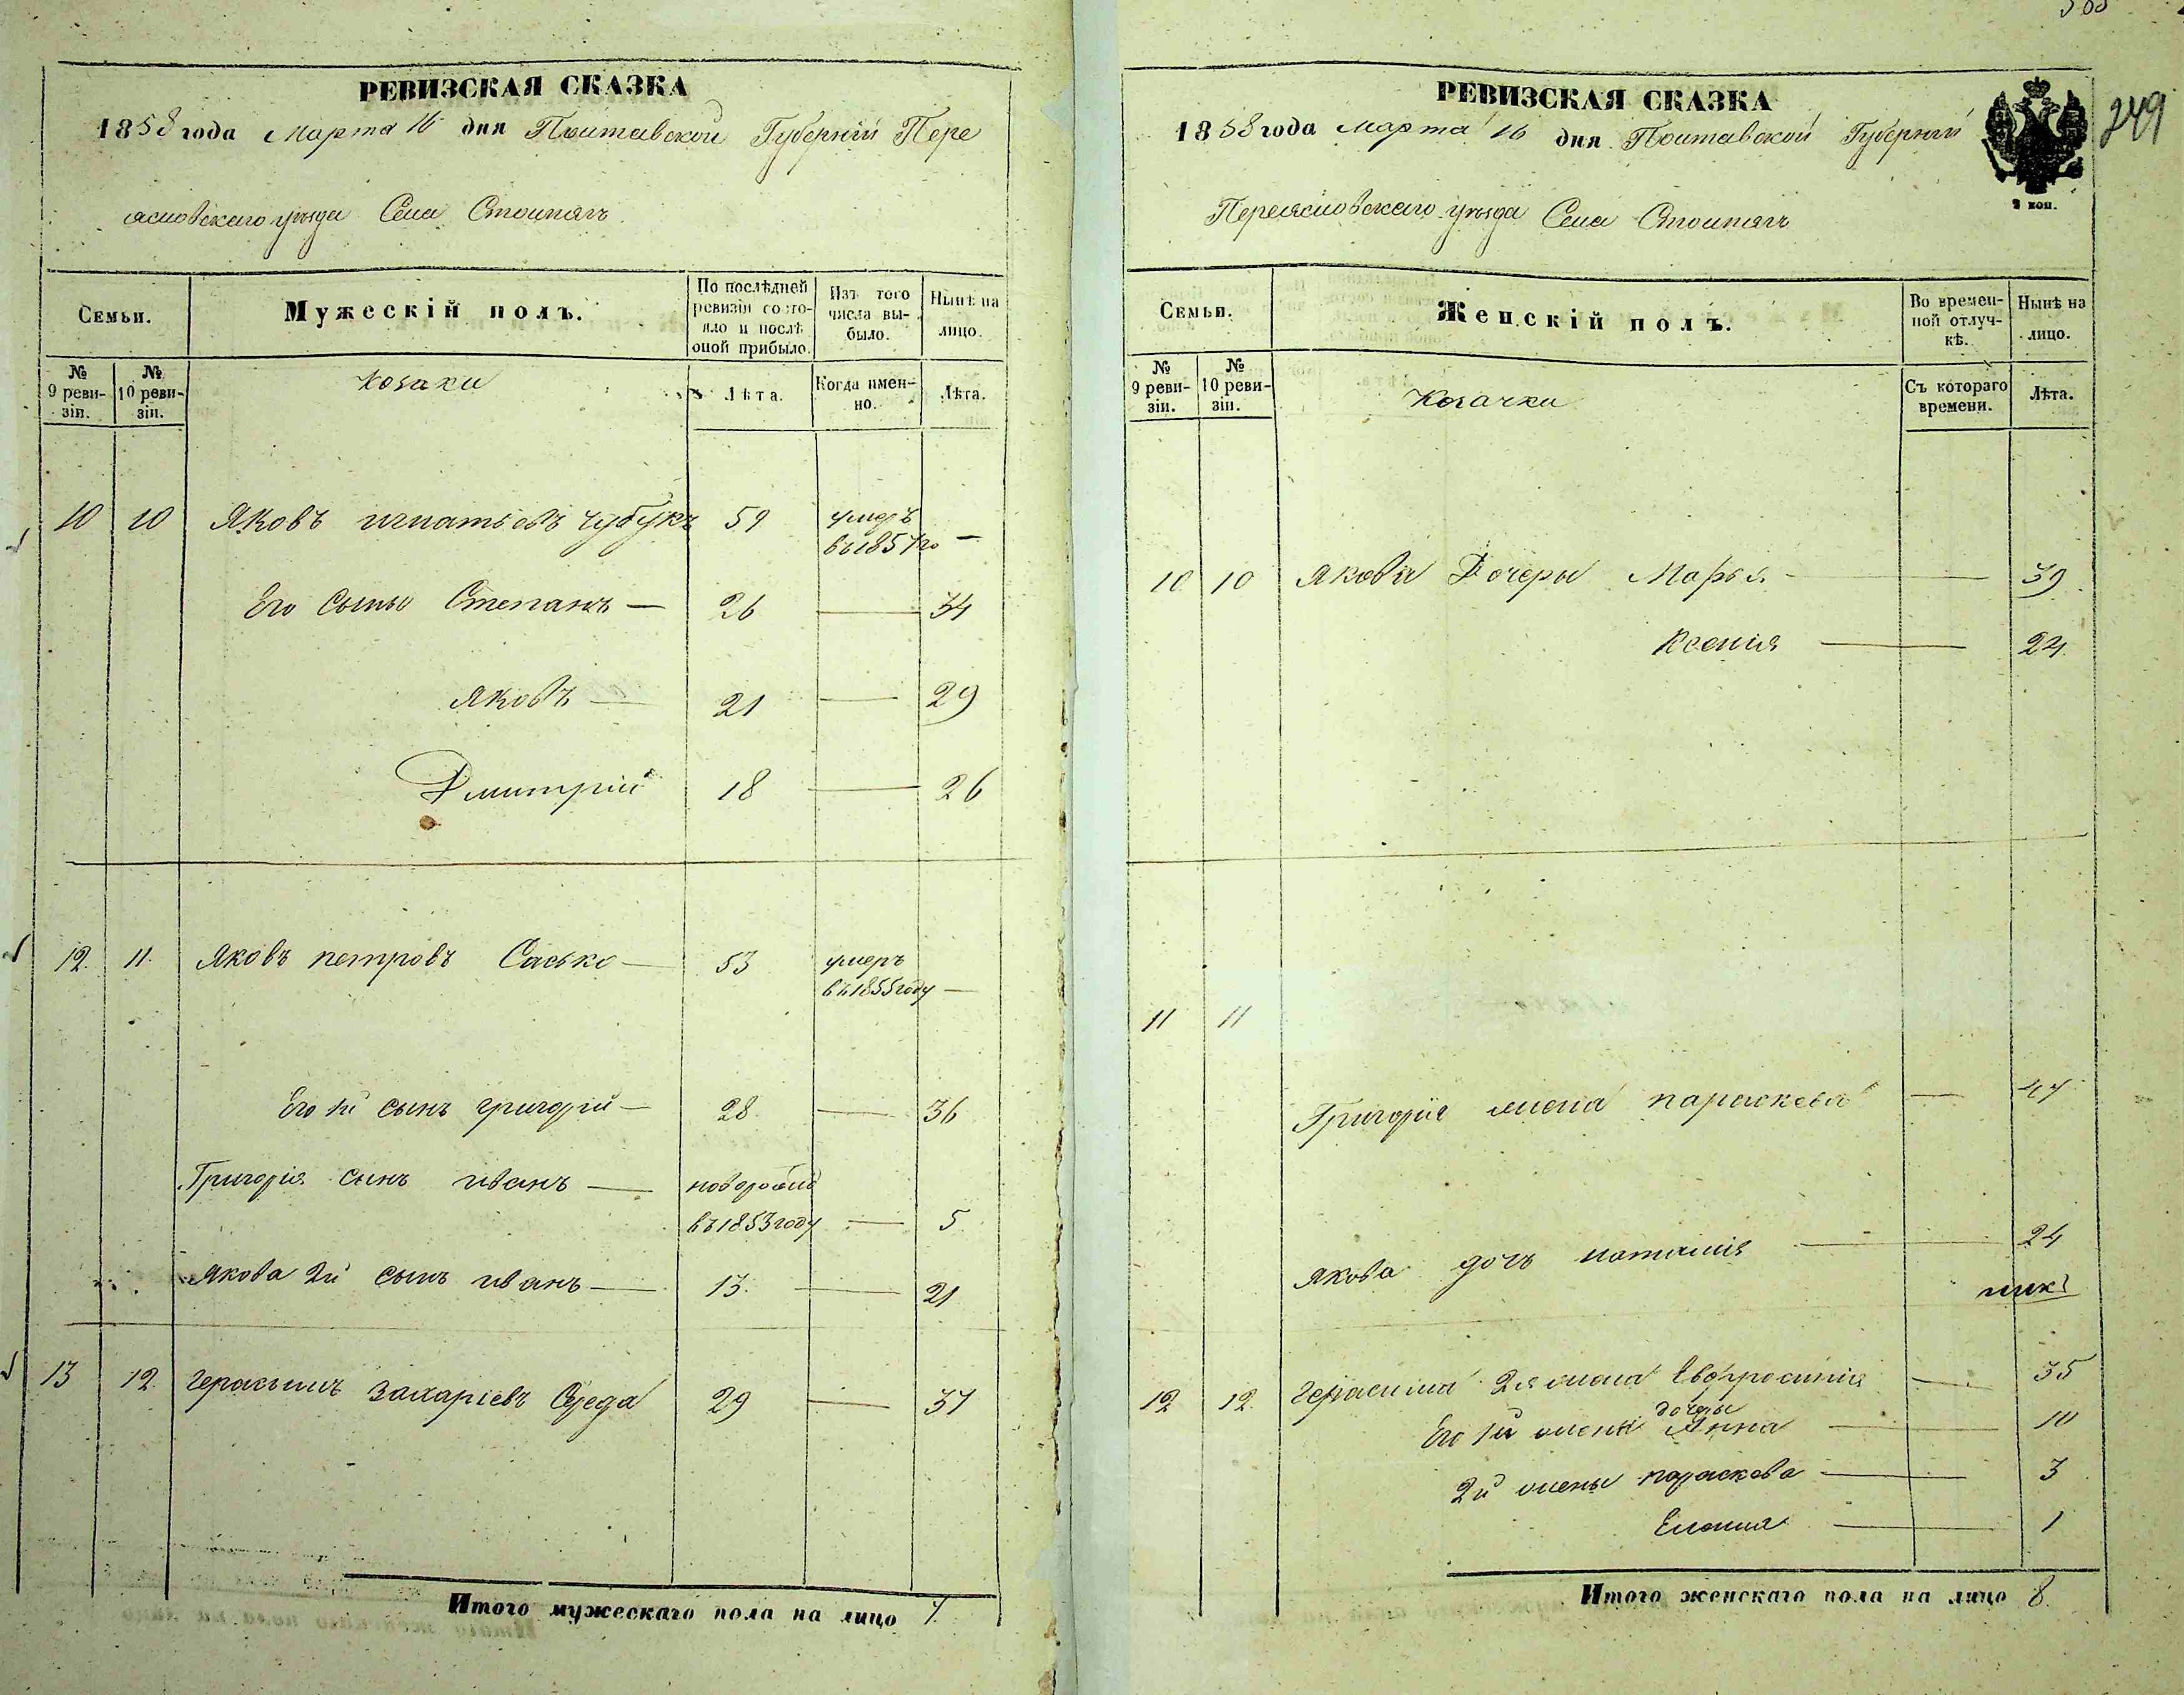 РЕВИЗСКАЯ СКАЗКА
1858 года Марта 16 дня Полтавской Губернии Пере
яславскаго уѣзда Села Стоипягъ
Семьи.
Мужескій полъ.
По послѣдней ревизіи состояло и послѣ оной прибыло.
Изъ того числа выбыло.
Нынѣ на лицо.
№ 9 ревизіи.
№ 10 ревизіи.
Козаки
Лѣта.
Когда именно.
Лѣта.
10 10 Яковъ игнатьевъ Чубукъ 59 умеръ
въ 1857 го —
Его Сыны Степанъ — 26 — 34
Яковъ — 21 — 29
Дмитрій 18 — 26
12. 11. Яковъ петровъ Сасько — 53 умеръ
въ 1855 году —
Его 1й сынъ григорій — 28 — 36
Григорія сынъ иванъ — 
въ 1853 году — 5
Якова 2й сынъ иванъ — 13 — 21
13 12. герасимъ Захаріевъ Середа 29 — 37
Итого мужескаго пола на лицо 7.
249
РЕВИЗСКАЯ СКАЗКА
1858 года Марта 16 дня Полтавской Губерніи
Переяславскаго уѣзда Села Стоипягъ
2 коп.
Семьи.
Женскій полъ.
Во временной отлучкѣ.
Нынѣ на лицо.
№ 9 ревизіи.
№ 10 ревизіи.
Козачки
Съ котораго времени.
Лѣта.
10 10 Якова Дочери Марья — 39
Ксенія — 24
11 11
Григорія жена параскева — 47
Якова дочь наталія — 24
12 12. герасима 2я жена Евфросинія — 35
дочери
Его 1й жены Анна — 10
2й жены параскева — 3
— 1
Итого женскаго пола на лицо 8.